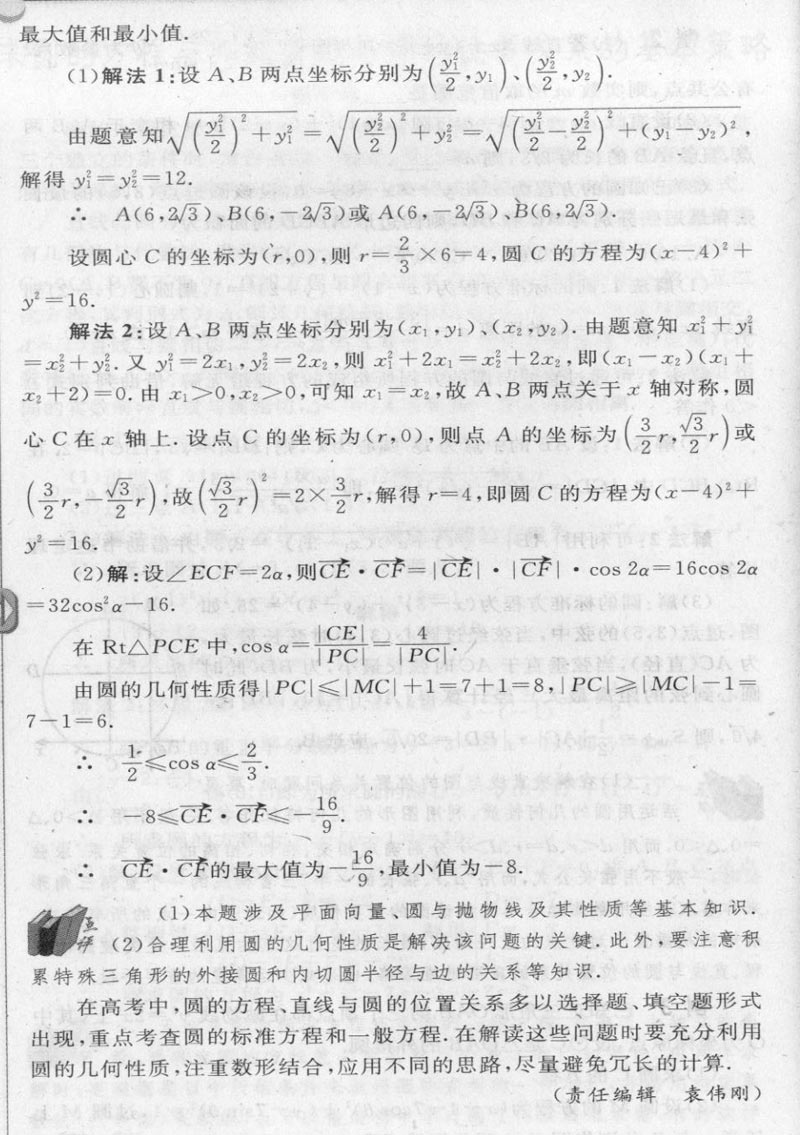 最大值和最小值.
(1)解法 1:设 A、B 两点坐标分别为(y₁²/2,y₁)、(y₂²/2,y₂).
由题意知√((y₁²/2)²+y₁²)=√((y₂²/2)²+y₂²)=√((y₁²/2-y₂²/2)²+(y₁-y₂)²),
解得 y₁²=y₂²=12.
∴ A(6,2√3),B(6,-2√3)或 A(6,-2√3),B(6,2√3).
设圆心 C 的坐标为(r,0),则 r=2/3×6=4,圆 C 的方程为(x-4)²+
y²=16.
解法 2:设 A、B 两点坐标分别为(x₁,y₁)、(x₂,y₂).由题意知 x₁²+y₁²
=x₂²+y₂².又 y₁²=2x₁,y₂²=2x₂,则 x₁²+2x₁=x₂²+2x₂,即(x₁-x₂)(x₁+
x₂+2)=0.由 x₁>0,x₂>0,可知 x₁=x₂,故 A、B 两点关于 x 轴对称,圆
心 C 在 x 轴上.设点 C 的坐标为(r,0),则点 A 的坐标为(3/2r,√3/2r)或
(3/2r,-√3/2r),故(√3/2r)²=2×3/2r,解得 r=4,即圆 C 的方程为(x-4)²+
y²=16.
(2)解:设∠ECF=2α,则CE→·CF→=|CE→|·|CF→|·cos 2α=16cos 2α
=32cos²α-16.
在 Rt△PCE 中,cos α=|CE|/|PC|=4/|PC|.
由圆的几何性质得|PC|≤|MC|+1=7+1=8,|PC|≥|MC|-1=
7-1=6.
∴ 1/2≤cos α≤2/3.
∴ -8≤CE→·CF→≤-16/9.
∴ CE→·CF→的最大值为-16/9,最小值为-8.
点评 (1)本题涉及平面向量、圆与抛物线及其性质等基本知识.
(2)合理利用圆的几何性质是解决该问题的关键.此外,要注意积
累特殊三角形的外接圆和内切圆半径与边的关系等知识.
在高考中,圆的方程、直线与圆的位置关系多以选择题、填空题形式
出现,重点考查圆的标准方程和一般方程.在解读这些问题时要充分利用
圆的几何性质,注重数形结合,应用不同的思路,尽量避免冗长的计算.
(责任编辑 袁伟刚)